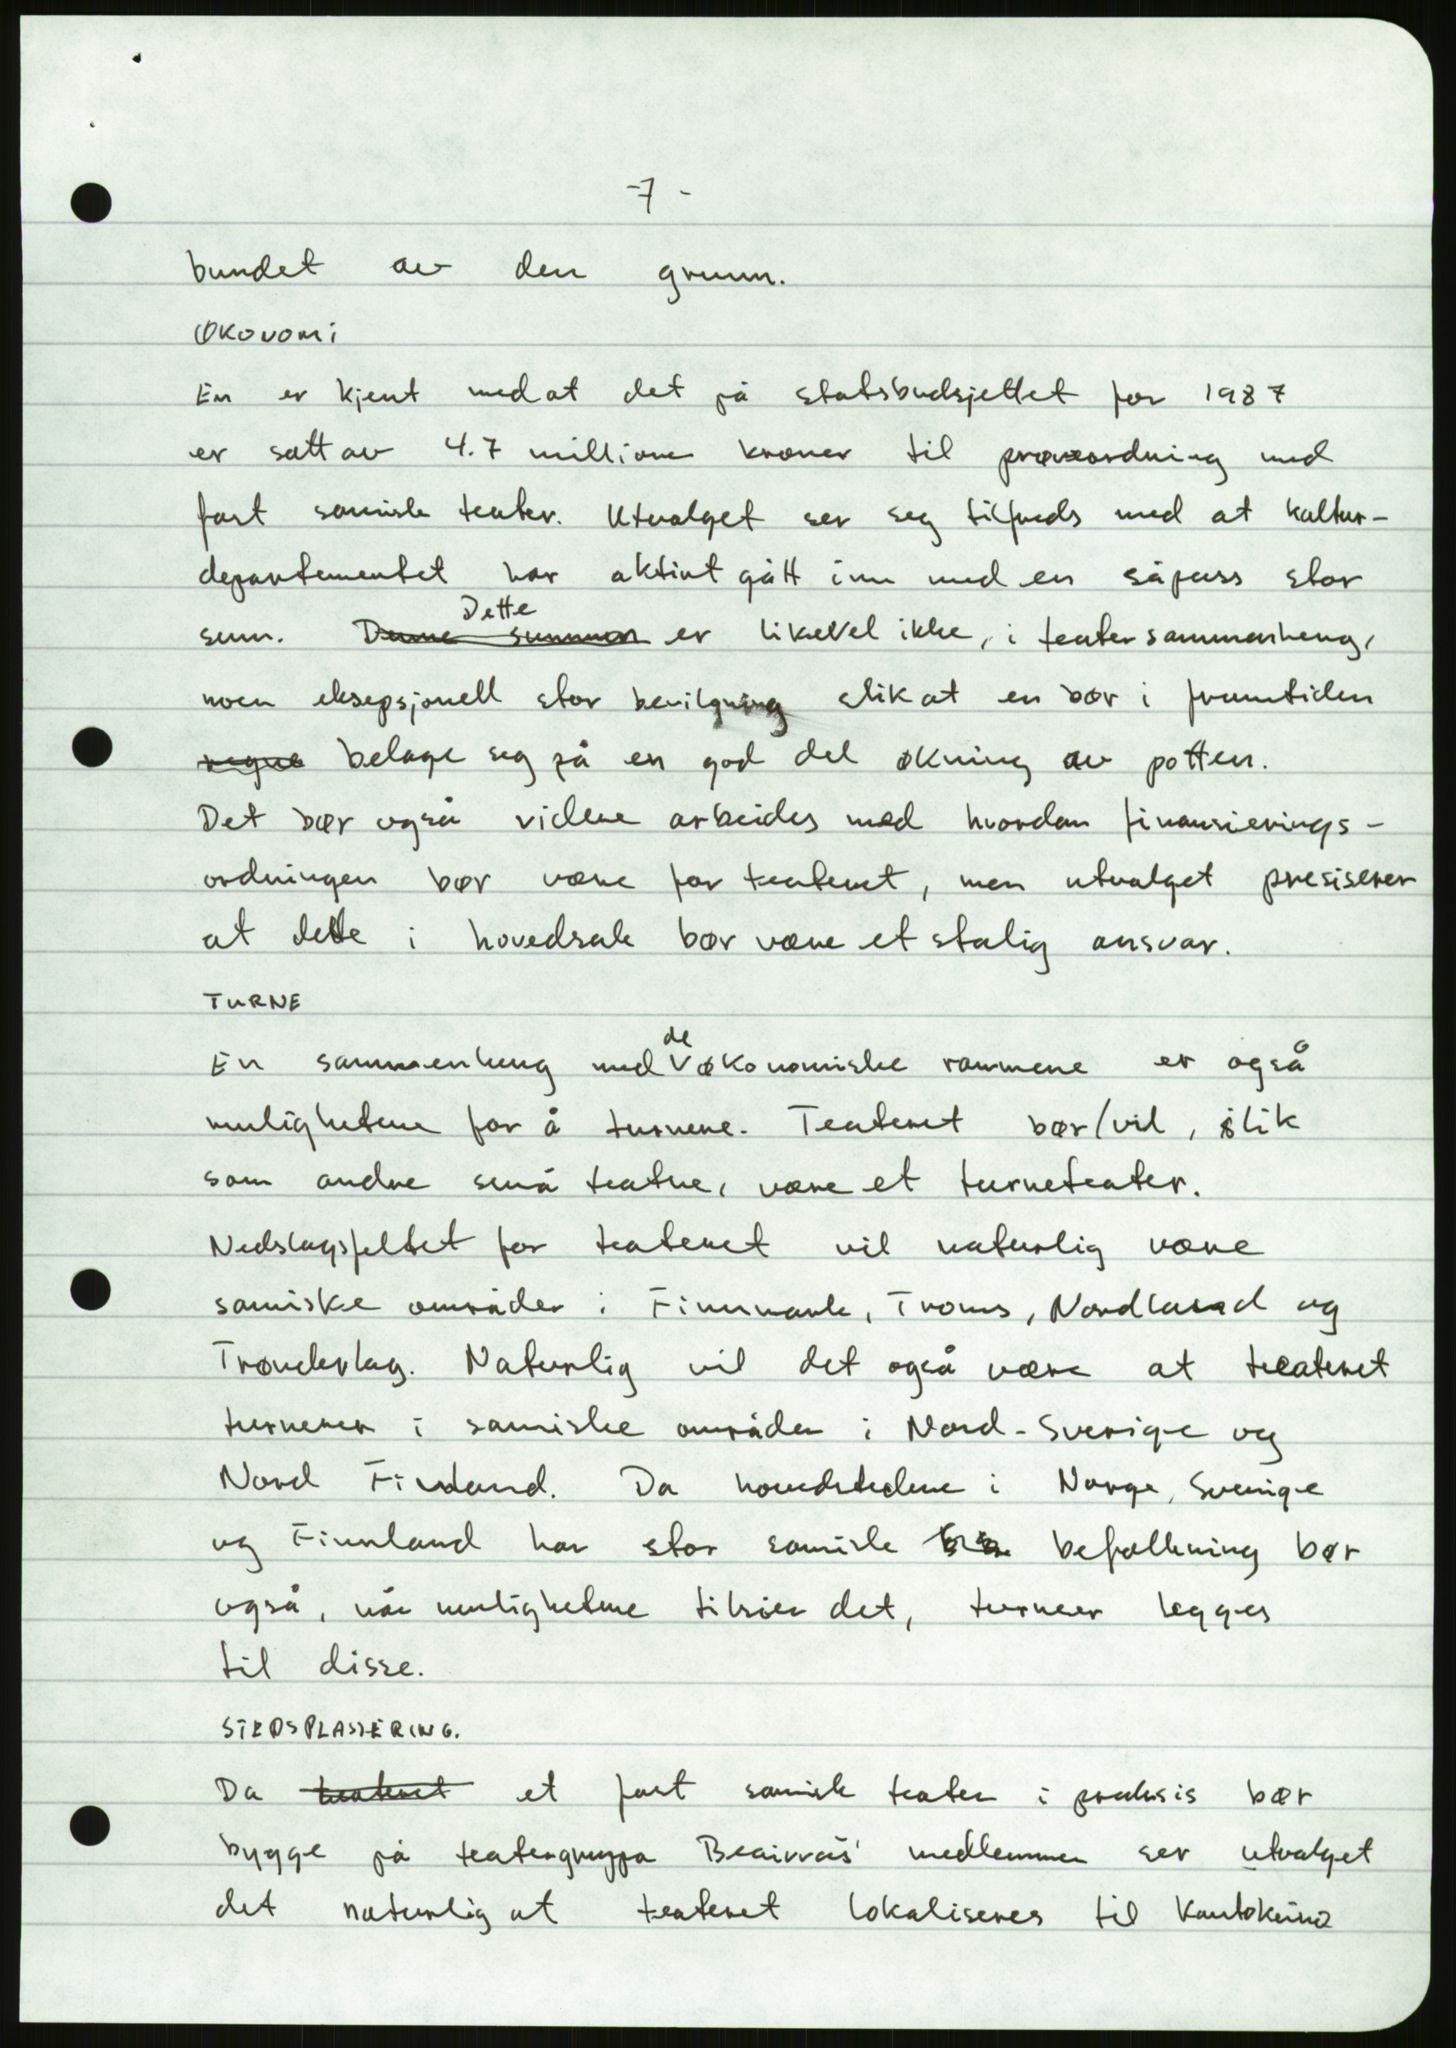 -7-
bundet av den grunn.
ØKONOMI
En er kjent med at det på statsbudsjettet for 1987
er satt av 4.7 millioner kroner til prøveordning med
fast samisk teater. Utvalget ser seg tilfreds med at kultur-
departementet har aktivt gått inn med en såpass stor
Dette
sum. Denne summen er likevel ikke, i teatersammenheng,
noen eksepsjonell stor bevilgning slik at en bør i fremtiden
regne belage seg på en god del økning av potten.
Det bør også videre arbeides med hvordan finansierings-
ordningen bør være for teateret, men utvalget presiserer
at dette i hovedsak bør være et statlig ansvar.
TURNE
de
En sammenheng med økonomiske rammene er også
mulighetene for å turnere. Teateret bør/vil, slik
som andre små teatre, være et turneteater.
Nedslagsfeltet for teateret vil naturlig være
samiske områder i Finnmark, Troms, Nordland og
Trønderlag. Naturlig vil det også være at teateret
turnerer i samiske områder i Nord-Sverige og
Nord Finland. Da hovedstedene i Norge, Sverige
og Finnland har stor samisk befolkning bør
også, når mulighetene tilsier det, turneer legges
til disse.
STEDSPLASSERING.
Da teateret et fast samisk teater i praksis bør
bygge på teatergruppa Beaivváš' medlemmer ser utvalget
det naturlig at teateret lokaliseres til Kautokeino